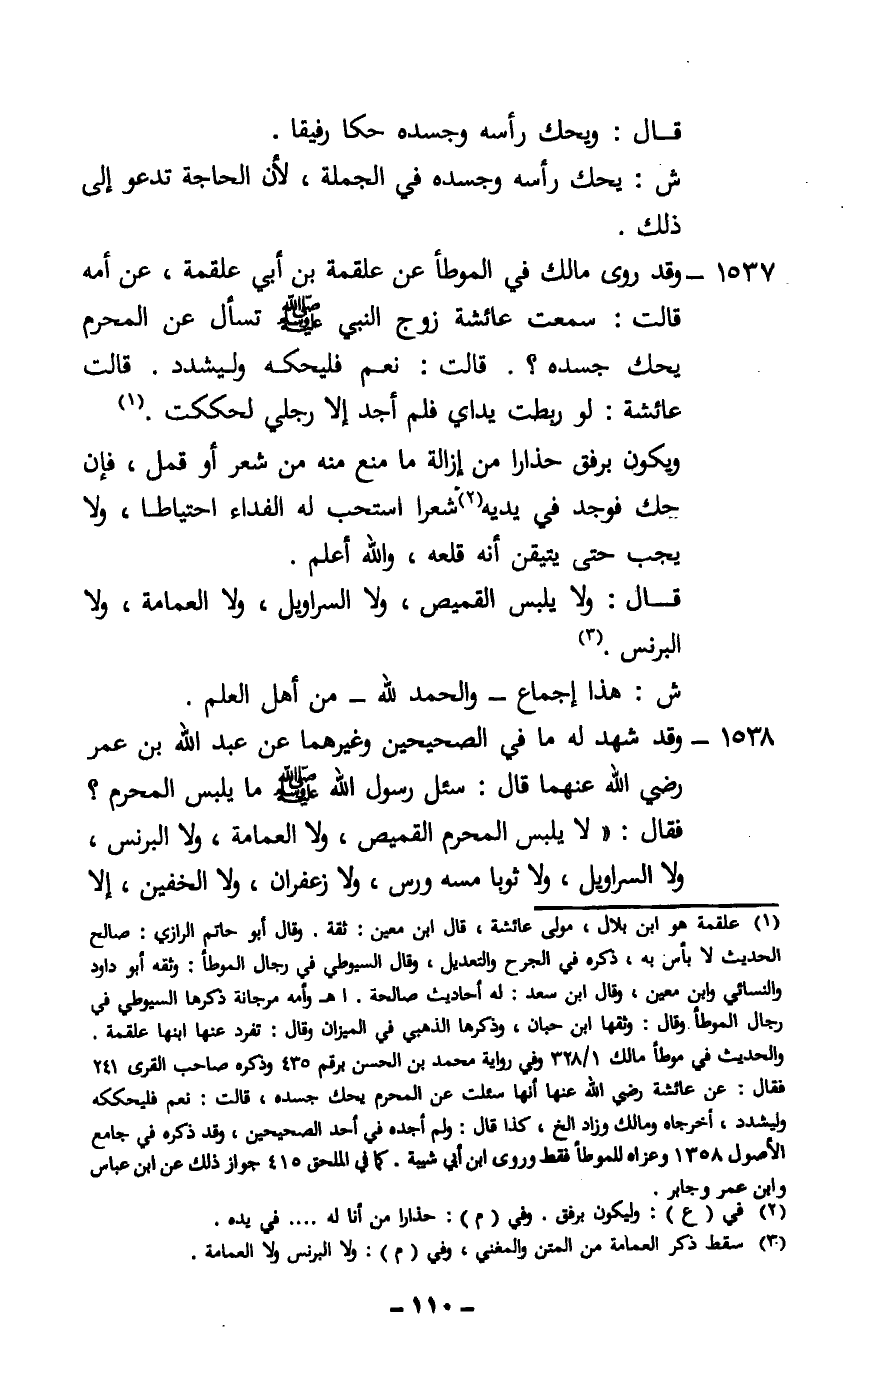 قــال : ويحك رأسه وجسده حكا رفيقا .
ش : يحك رأسه وجسده في الجملة ، لأن الحاجة تدعو إلى
ذلك .
١٥٣٧ – وقد روى مالك في الموطأ عن علقمة بن أبي علقمة ، عن أمه
قالت : سمعت عائشة زوج النبي ﷺ تسأل عن المحرم
يحك جسده ؟ . قالت : نعـم فليحكـه وليشدد . قالت
عائشة : لو ربطت يداي فلم أجد إلا رجلي لحككت .(١)
ويكون برفق حذارا من إزالة ما منع منه من شعر أو قمل ، فإن
حك فوجد في يديه(٢) شعرا استحب له الفداء احتياطـا ، ولا
يجب حتى يتيقن أنه قلعه ، والله أعلم .
قــال : ولا يلبس القميص ، ولا السراويل ، ولا العمامة ، ولا
البرنس .(٣)
ش : هذا إجماع – والحمد لله – من أهل العلم .
١٥٣٨ – وقد شهد له ما في الصحيحين وغيرهما عن عبد الله بن عمر
رضي الله عنهما قال : سئل رسول الله ﷺ ما يلبس المحرم ؟
فقال : « لا يلبس المحرم القميص ، ولا العمامة ، ولا البرنس ،
ولا السراويل ، ولا ثوبا مسه ورس ، ولا زعفران ، ولا الخفين ، إلا
(١) علقمة هو ابن بلال ، مولى عائشة ، قال ابن معين : ثقة . وقال أبو حاتم الرازي : صالح
الحديث لا بأس به ، ذكره في الجرح والتعديل ، وقال السيوطي في رجال الموطأ : وثقه أبو داود
والنسائي وابن معين ، وقال ابن سعد : له أحاديث صالحة . ا هـ وأمه مرجانة ذكرها السيوطي في
رجال الموطأ وقال : وثقها ابن حبان ، وذكرها الذهبي في الميزان وقال : تفرد عنها ابنها علقمة .
والحديث في موطأ مالك ٣٢٨/١ وفي رواية محمد بن الحسن برقم ٤٣٥ وذكره صاحب القرى ٢٤١
فقال : عن عائشة رضي الله عنها أنها سئلت عن المحرم يحك جسده ، قالت : نعم فليحككه
وليشدد ، أخرجاه ومالك وزاد الخ ، كذا قال : ولم أجده في أحد الصحيحين ، وقد ذكره في جامع
الأصول ١٣٥٨ وعزاه للموطأ فقط وروى ابن أبي شيبة . كما في الملحق ٤١٥ جواز ذلك عن ابن عباس
وابن عمر وجابر .
(٢) في ( ع ) : وليكون برفق . وفي ( م ) : حذارا من أنا له .... في يده .
(٣) سقط ذكر العمامة من المتن والمغني ، وفي ( م ) : ولا البرنس ولا العمامة .
– ١١٠ –